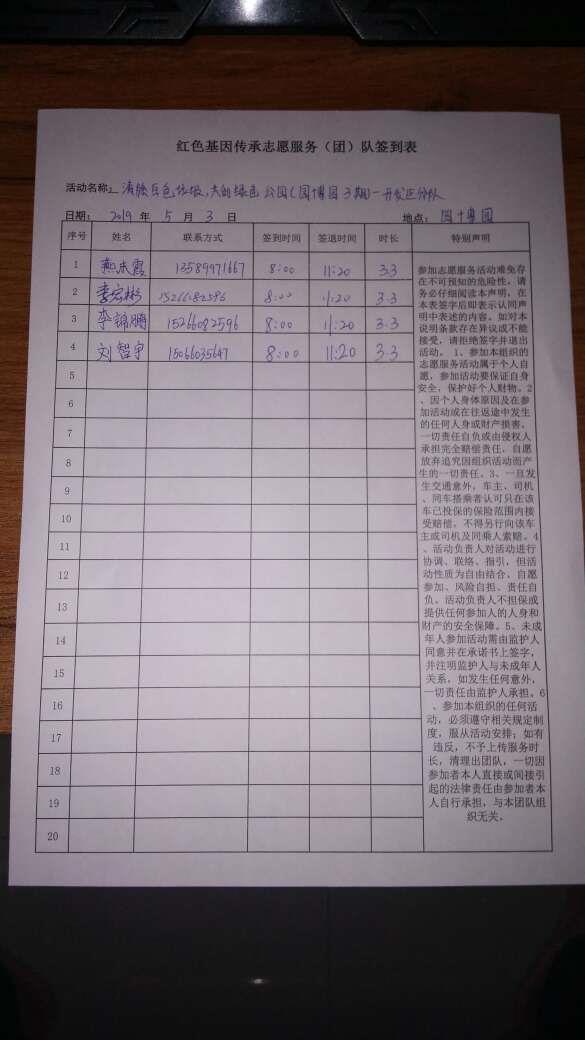 红色基因传承志愿服务（团）队签到表
活动名称：清除白色垃圾,共创绿色公园(园博园3期)-开发区分队
日期： 2019 年 5 月 3 日 地点： 园博园
序号 姓名 联系方式 签到时间 签退时间 时长 特别声明
1 13589971667 8:00 11:20 3.3
2 李宏彬 15266082596 8:00 11:20 3.3
3 李锦鹏 15266082596 8:00 11:20 3.3
4 刘智宇 15066035647 8:00 11:20 3.3
5
6
7
8
9
10
11
12
13
14
15
16
17
18
19
20
参加志愿服务活动难免存
在不可预知的危险性，请
务必仔细阅读本声明，在
本表签字后即表示认同声
明中表述的内容。如对本
说明条款存在异议或不能
接受，请拒绝签字并退出
活动。 1、参加本组织的
志愿服务活动属于个人自
愿，参加活动要保证自身
安全，保护好个人财物。2
、因个人身体原因及在参
加活动或在往返途中发生
的任何人身或财产损害，
一切责任自负或由侵权人
承担完全赔偿责任，自愿
放弃追究因组织活动而产
生的一切责任。3、一旦发
生交通意外，车主、司机
、同车搭乘者认可只在该
车已投保的保险范围内接
受赔偿，不得另行向该车
主或司机及同乘人索赔。4
、活动负责人对活动进行
协调、联络、指引，但活
动性质为自由结合、自愿
参加、风险自担、责任自
负。活动负责人不担保或
提供任何参加人的人身和
财产的安全保障。5、未成
年人参加活动需由监护人
同意并在承诺书上签字，
并注明监护人与未成年人
关系，如发生任何意外，
一切责任由监护人承担。6
、参加本组织的任何活
动，必须遵守相关规定制
度，服从活动安排；如有
违反，不予上传服务时
长，清理出团队，一切因
参加者本人直接或间接引
起的法律责任由参加者本
人自行承担，与本团队组
织无关。